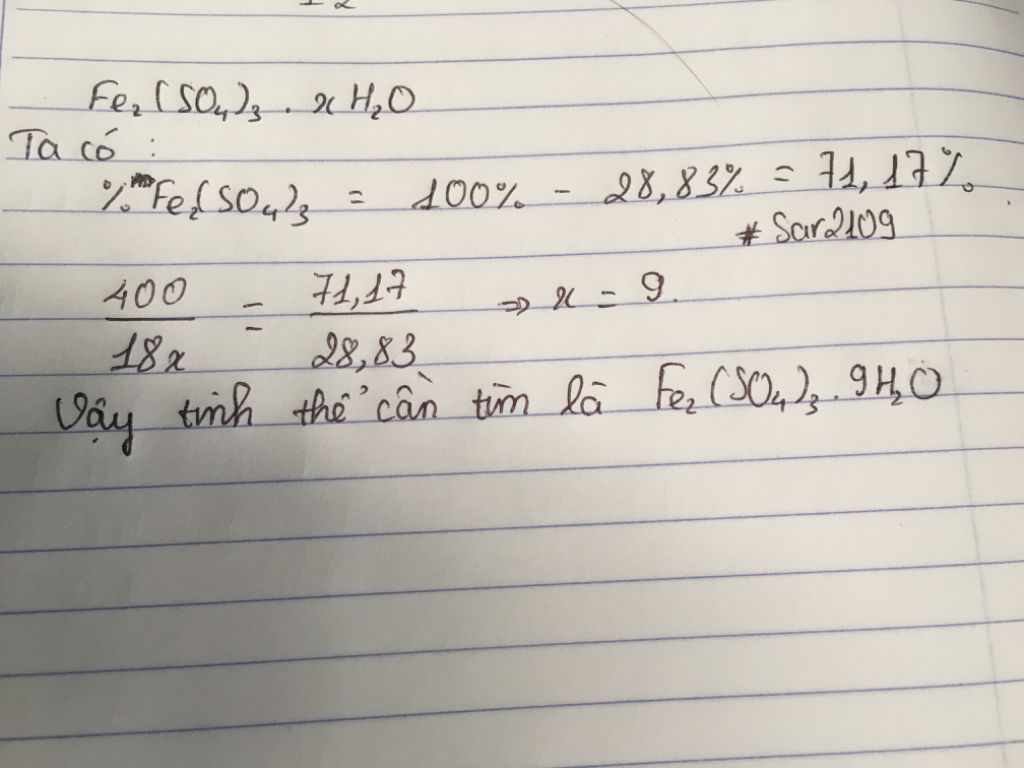 Fe₂(SO₄)₃ . x H₂O
Ta có :
% Fe₂(SO₄)₃ = 100% - 28,83% = 71,17%
# Sar2109
400/18x = 71,17/28,83 => x = 9.
Vậy tinh thể cần tìm là Fe₂(SO₄)₃.9H₂O